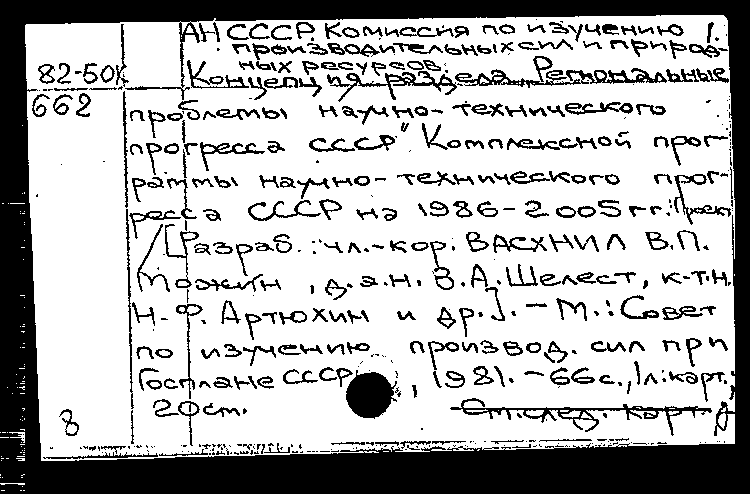 АН СССР. Комиссия по изучению 1.
производительных сил и природ-
ных ресурсов.
82-50к Концепция раздела „Региональные
662 проблемы научно-технического
прогресса СССР" Комплексной прог-
раммы научно-технического прог-
ресса СССР на 1986-2005 гг.: Проект
/[Разраб.: чл.-кор. ВАСХНИЛ В.П.
Можин, д.э.н. В.А. Шелест, к.т.н.
Н.Ф. Артюхин и др.]. - М.: Совет
по изучению производ. сил при
Госплане СССР, 1981. - 66 с., 1 л. карт.;
20 см. См. след. карт.
8